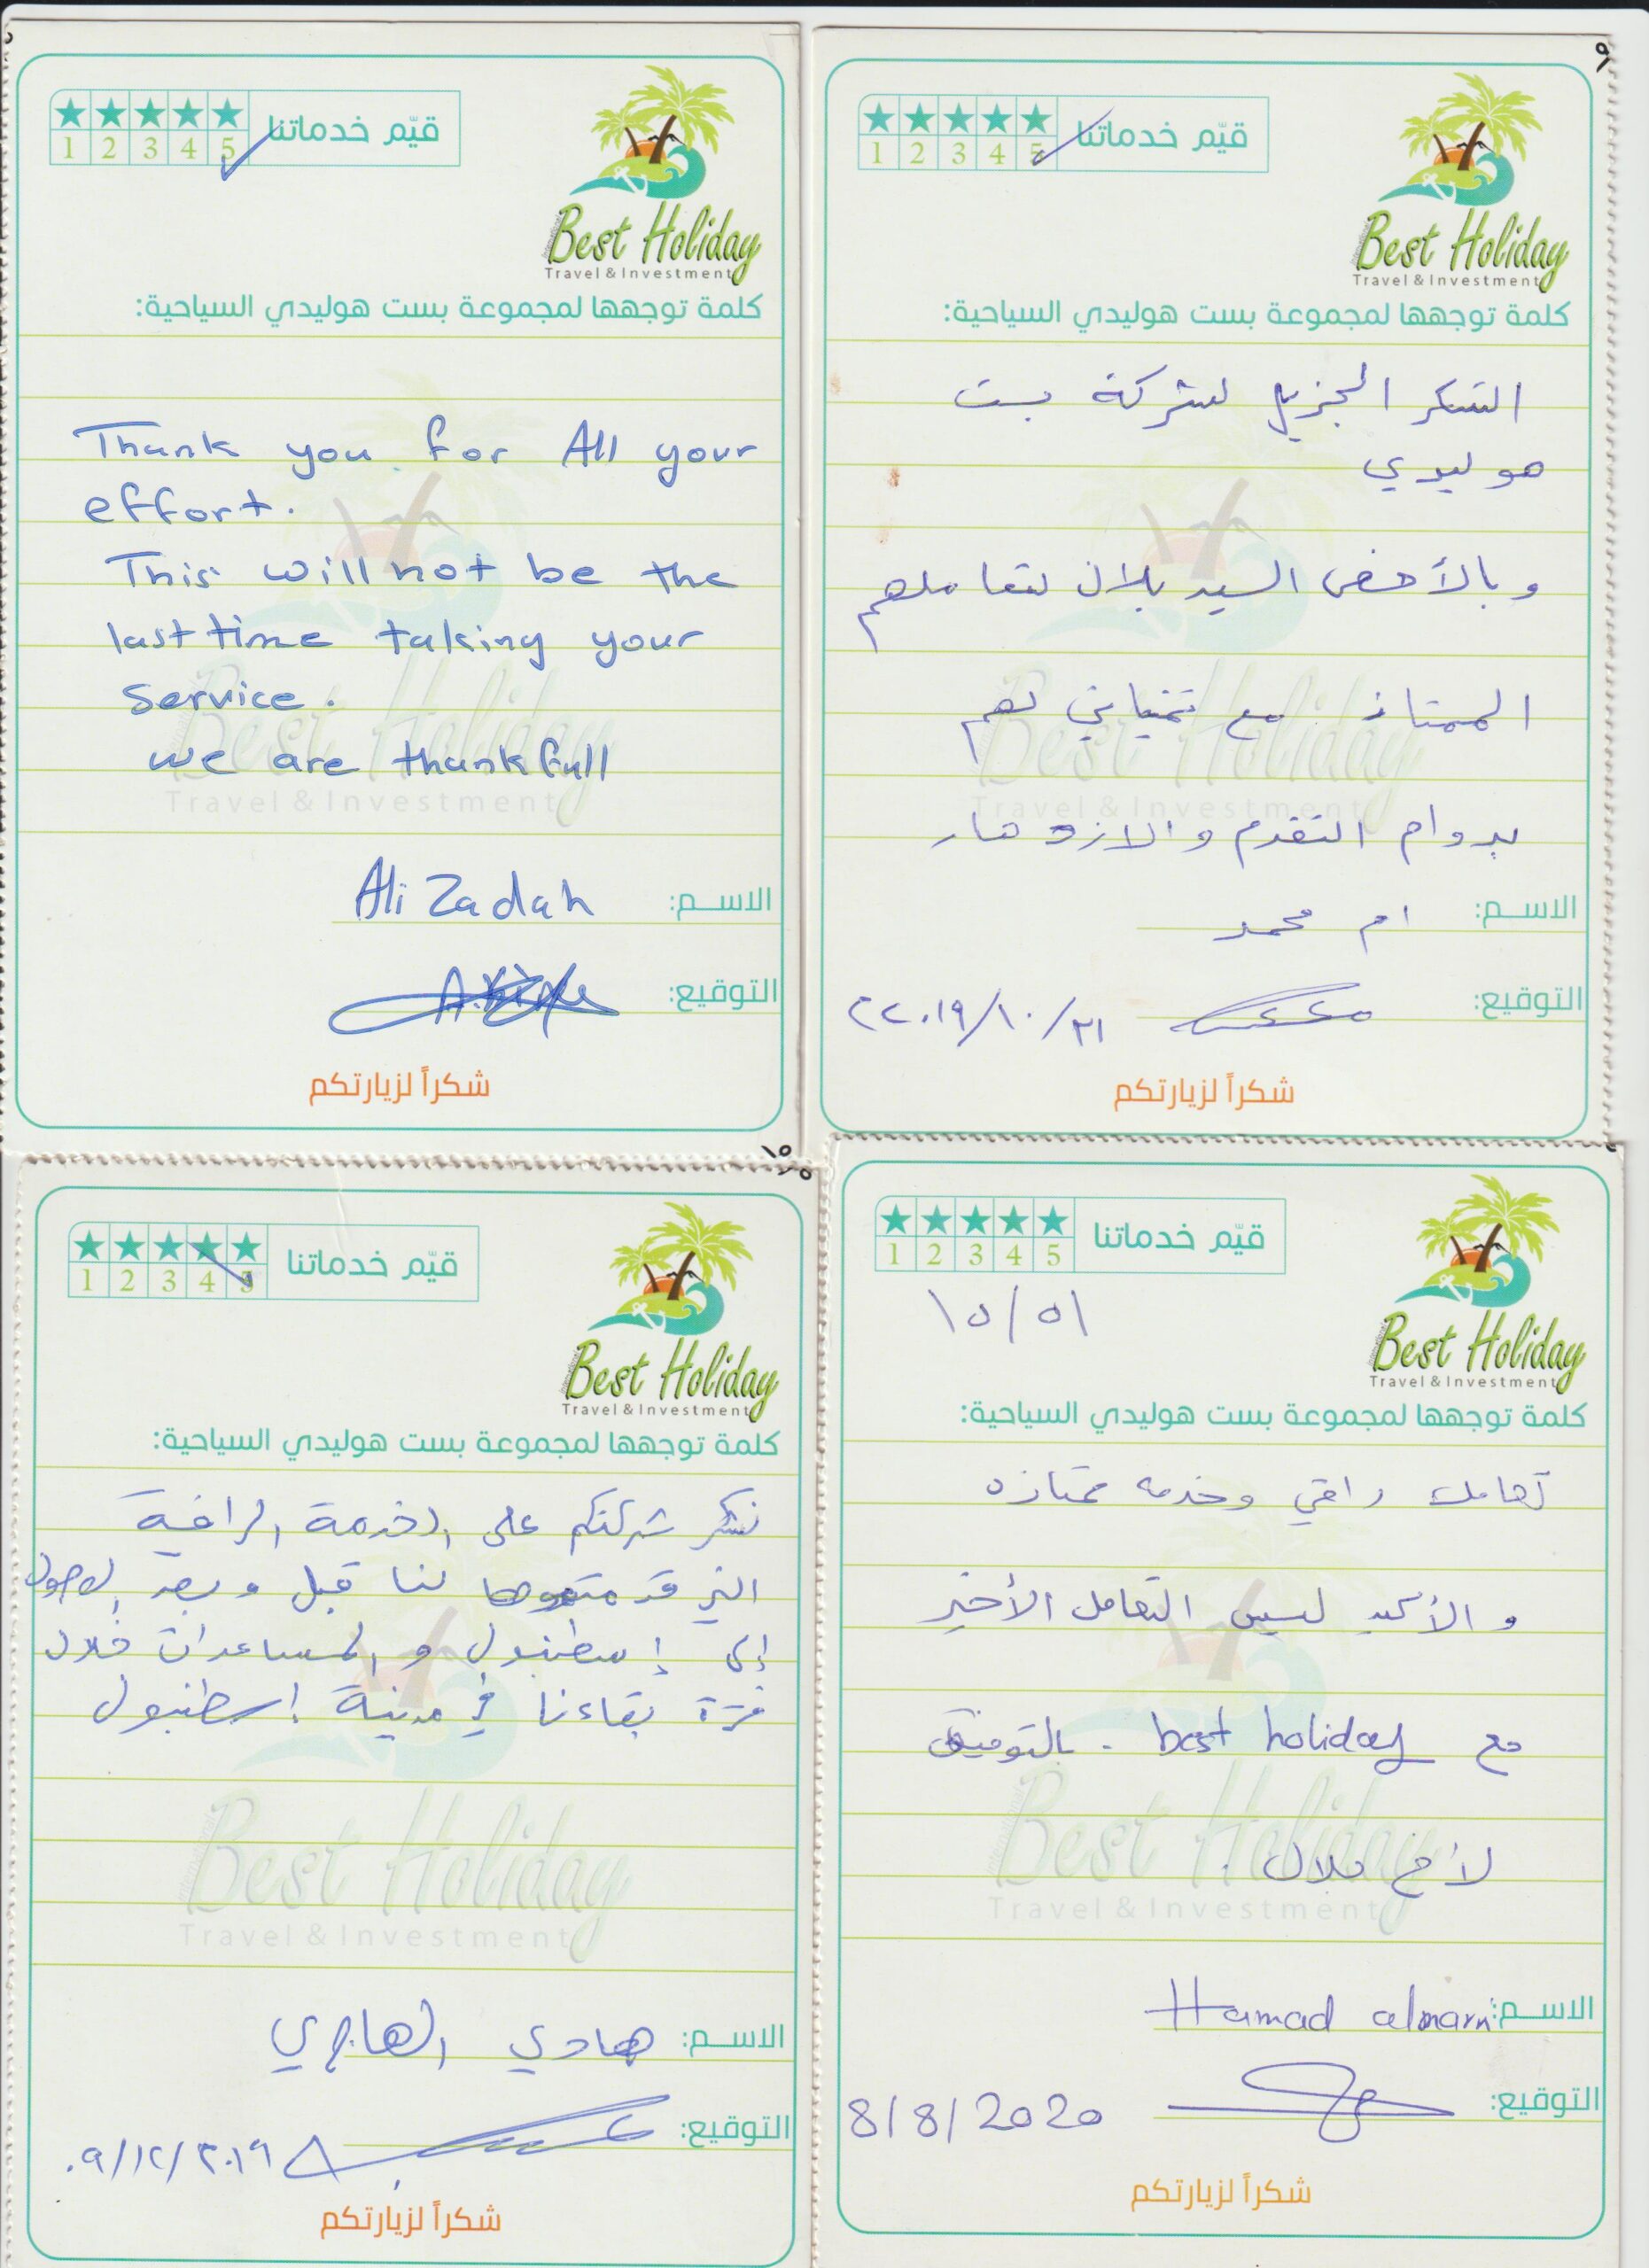 ★ ★ ★ ★ ★
1 2 3 4 5
قيّم خدماتنا
Best Holiday
Travel & Investment
كلمة توجهها لمجموعة بست هوليدي السياحية:
Thank you for All your
effort.
This will not be the
last time taking your
service.
we are thankfull
الاسم: Ali Zadah
التوقيع:
شكراً لزيارتكم
★ ★ ★ ★ ★
1 2 3 4 5
قيّم خدماتنا
Best Holiday
Travel & Investment
كلمة توجهها لمجموعة بست هوليدي السياحية:
الشكر الجزيل لشركة بست
هوليدي
وبالأخص السيد بلال لتعاملهم
الممتاز مع تمنياتي لهم
بدوام التقدم والازدهار
الاسم: ام محمد
التوقيع:
شكراً لزيارتكم
★ ★ ★ ★ ★
1 2 3 4 5
قيّم خدماتنا
Best Holiday
Travel & Investment
كلمة توجهها لمجموعة بست هوليدي السياحية:
نشكر شركتكم على الخدمة الراقية
التي قدمتموها لنا قبل وبعد الوصول
إلى إسطنبول والمساعدات خلال
فترة بقاءنا في مدينة اسطنبول
الاسم: هادي الهاجري
التوقيع: ٠٩/١٢/٢٠١٩
شكراً لزيارتكم
★ ★ ★ ★ ★
1 2 3 4 5
قيّم خدماتنا
١٥/٥١
Best Holiday
Travel & Investment
كلمة توجهها لمجموعة بست هوليدي السياحية:
تعامل راقي وخدمه ممتازه
والأكيد ليس التعامل الأخير
مع best holiday . بالتوفيق
لأخ بلال .
الاسم: Hamad almarri
التوقيع: 8/8/2020
شكراً لزيارتكم